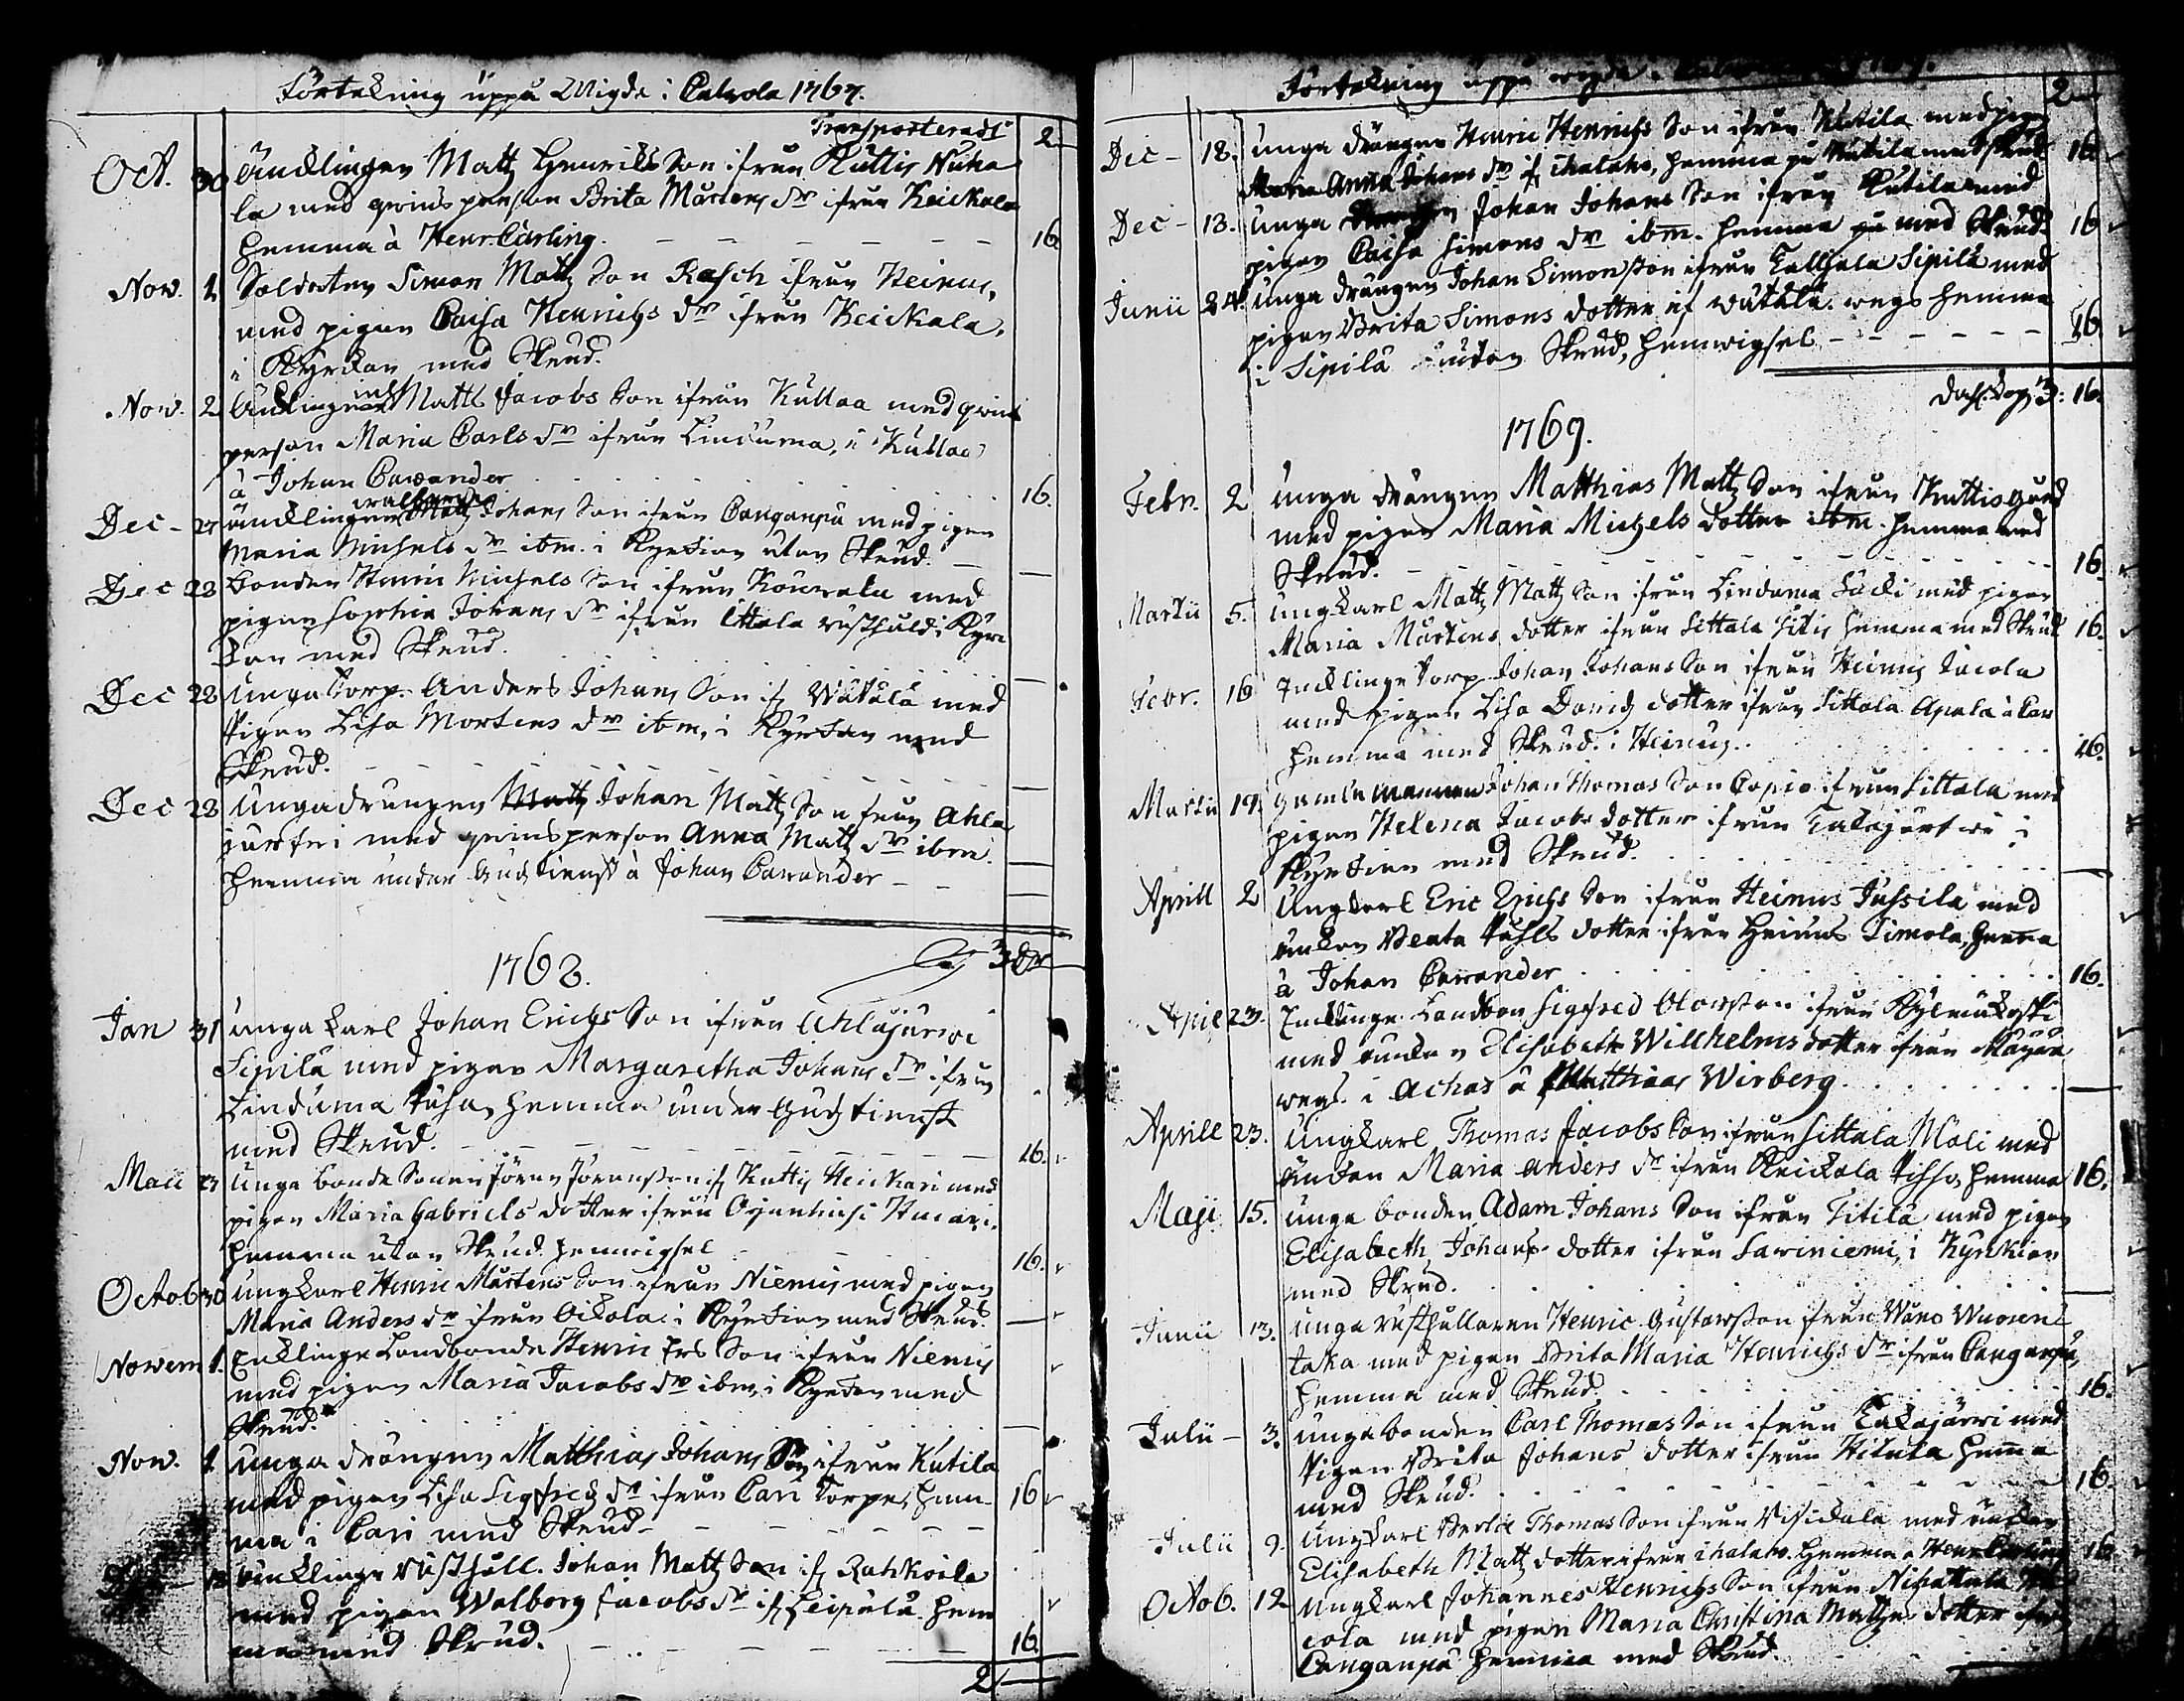 Förtekning uppå Wigde i Calvola 1767.
Transporterads 2
Oct. 30 Äncklingen Matts Henrichs Son ifrån Kuttis Nuka
la med qvinsperson Brita Mårtens dr ifrån Keickala
hemma à Henr Carling. 16
Nov. 1 Soldaten Simon Matts Son Rasch ifrån Heinus,
med pigan Caisa Henrichs dr ifrån Keickala,
i Kyrckan med Skrud.
Nov. 2 Äncklingen Matts Jacobs Son ifrån Kullaa med qvins
person Maria Carls dr ifrån Linduma, i Kullaa
à Johan Cawander 16.
Dec - 27 äncklingen Matts Johans Son ifrån Canganpä med pigan
Maria Michels dr ibm. i Kyrkian utan Skrud.
Dec 28 bonden Henric Michels Son ifrån Kouvala med
pigan Sophia Johans dr ifrån Ittala rusthåld i Kyrc
kan med Skrud.
Dec 28 Unga torp. Anders Johans Son if Wätälä med
Pigan Lisa Mortens dr ibm, i Kyrkan med
Skrud.
Dec 28 Unga drängen Matts Johan Matts Son från Ahla
jurfvi med qvinsperson Anna Matts dr ibm.
hemma under Gudstienst à Johan Cawander
3
1768.
Jan 31 unga karl Johan Erichs Son ifrån Ahlajärwi
Sipilä med pigan Margaretha Johans dr ifrån
Linduma hemma under Gudstienst
med Skrud. 16.
Maii 23 unga bonde Sonen Jören Jörensson if Kuttis Heickari med
pigan Maria Gabriels dotter ifrån
hemma utan Skrud hemwigsel 16.
Octob 30 ungkarl Henric Mårtens Son ifrån Niemis med pigan
Maria Anders dr ifrån Oickola i Kyrkian med Skrud
Novem 1. Encklinge Landbonde Henric Ers Son ifrån Niemis
med pigan Maria Jacobs dr ibm, i Kyrkan med
Skrud.
Nov. 1 unga drängen Matthias Johans Son ifrån Kutila
med pigan Lisa Sigfreds dr ifrån Cari Torpet, hem- 16
ma i Cari med Skrud
äncklinge Rusthåll. Johan Matts Son if Rahkoila
med pigan Walborg Jacobs dr if Leipälä. hem
ma med Skrud. 16
2
Förtekning uppå wigde i
2
Dec - 18. unga drängen Henric Henrichs Son ifrån Kutila med pigan
Maria Anna Johans dr if Ihalahe, hemma på Kutila med Skrud 16
Dec - 13. unga Johan Johans Son ifrån Kutila med
pigan Caisa Simons dr ibm. hemma på med Skrud 16
Junii 24. unga drängen Johan Simonsson ifrån Sipilä med
pigan Brita Simons dotter if Wätälä. wegs hemma
i Sipilä utan Skrud, hemwigsel 16
3: 16.
1769.
Febr. 2 unga drängen Matthias Matts Son ifrån Kuttis
med pigan Maria Michels dotter ibm. hemma med
Skrud. 16.
Martii 5. ungkarl Matts Matts Son ifrån Linduma med pigan
Maria Mårtens dotter ifrån Sittala hemma med Skrud 16.
Febr. 16 Encklinge torp. Johan Johans Son ifrån Heinus Jacola
med pigan Lisa Davids dotter ifrån Sittala Apala
hemma med Skrud. i Heinus. 16.
Martii 19. gamla mannen Johan Thomas Son ifrån Sittala med
pigan Helena Jacobs dotter ifrån Talajärfwi i
Kyrkian med Skrud.
Aprill 2 Ungkarl Eric Erichs Son ifrån Heinus Jussila med
änckan Beata dotter ifrån Heinus Simola, hema
à Johan Cawander 16.
April 23. Encklinge Landbon Sigfred Olowsson ifrån
med änckan Elisabeth Willhelms dotter ifrån
wegs i Achas à Matthias Wirberg
Aprill 23. Ungkarl Thomas Jacobs Son ifrån Sittala Moli med
änckan Maria Anders dr ifrån Keickala hemma 16.
Maji 15. unga bonden Adam Johans Son ifrån Titilä med pigan
Elisabeth Johans dotter ifrån Sawiniemi, i Kyrkian
med Skrud.
Junii 13. unga rusthållaren Henric Gustawsson ifrån Wäno Wuoren
taka med pigan Brita Maria Henrichs dr ifrån Canganpä,
hemma med Skrud. 16.
Julii - 3. unga bonden Carl Thomas Son ifrån Talajärwi med
Pigan Brita Johans dotter ifrån hema
med Skrud. 16
Julii 9. ungkarl Thomas Son ifrån med änckan
Elisabeth Matts dotter ifrån Ihalaho. hemma à Henr Carling 16
Octob. 12 ungkarl Johannes Henrichs Son ifrån
cola med pigan Maria Christina Matts dotter ifrån
Canganpä hemma med Skrud. 16